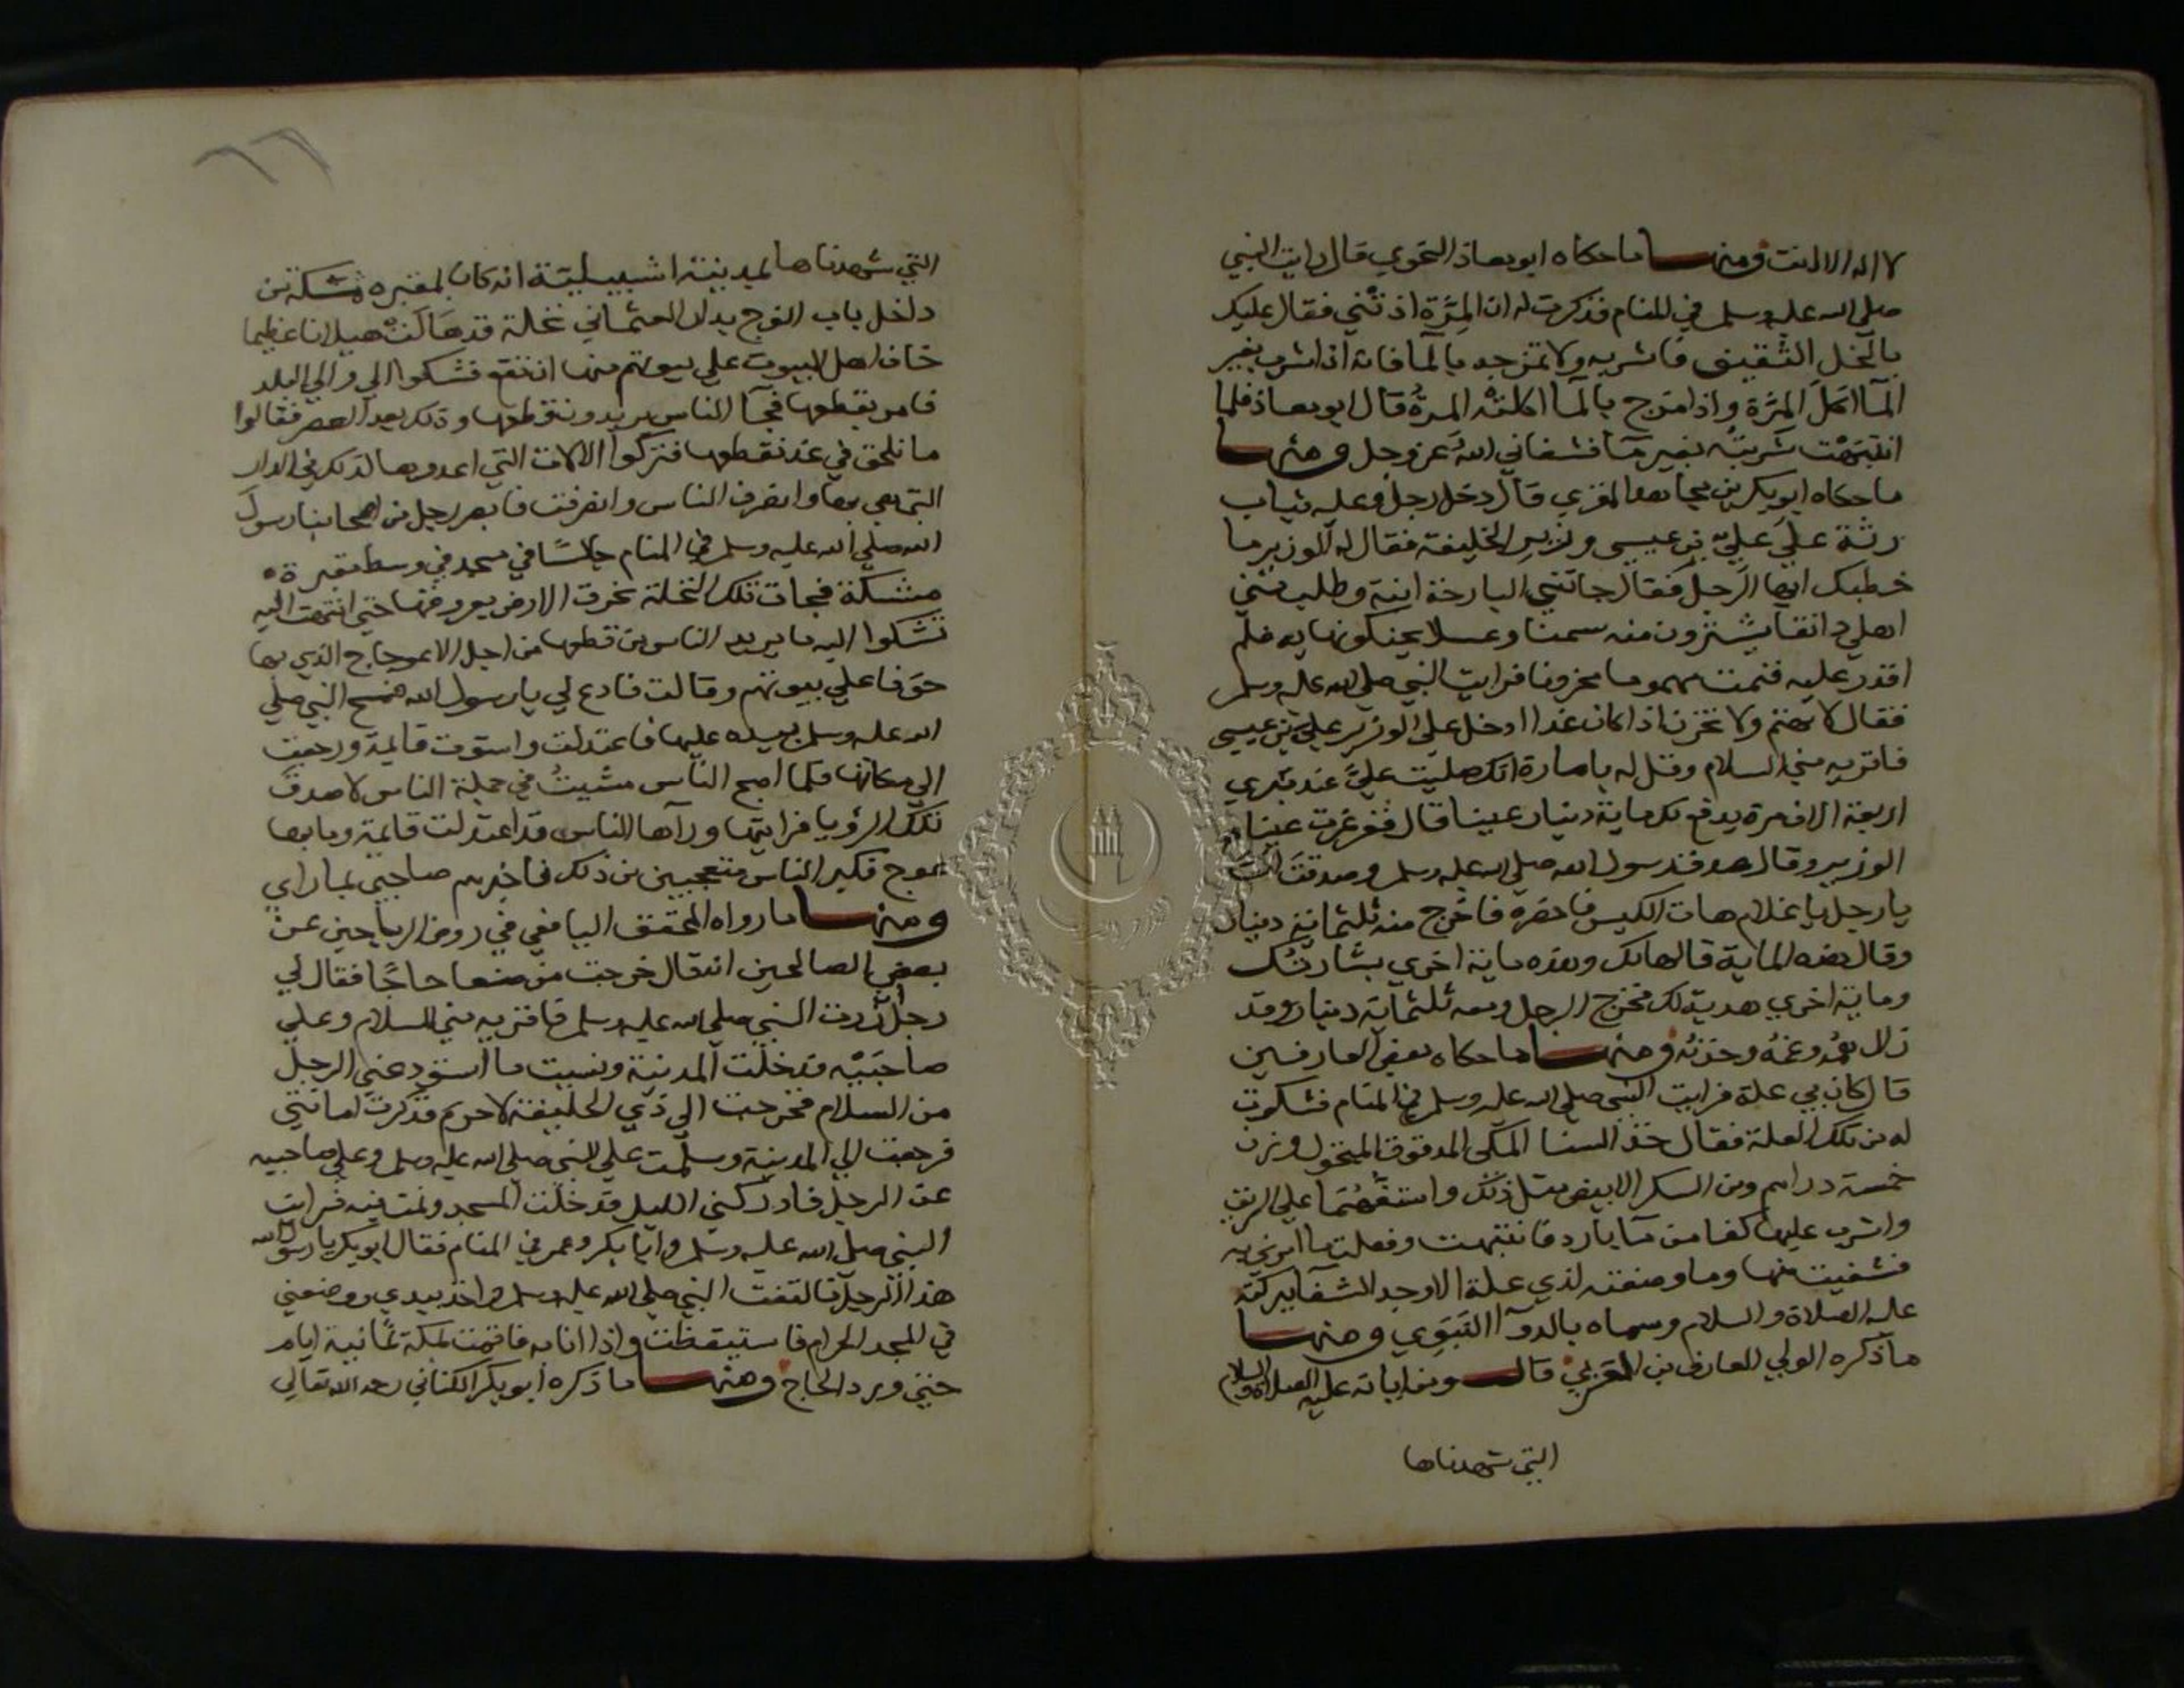 لا اله الا انت ومنها ما حكاه ابو معاذ النحوي قال رايت النبي
صلي الله عليه وسلم في المنام فذكرت له ان المِرَّة اذتْني فقال عليك
بالخل الثقيف فاشربه ولا تمزجه بالمآ فانه اذا شرب بغير
المآ اكل المِرَّة واذا مزج بالمآ اكلته المرةُ قال ابو معاذ فلما
انتبهْت شربته بغير مآ فشفاني الله عز وجل ومنها
ما حكاه ابو بكر بن مجاهد المقري قال دخل رجل وعليه ثياب
رثة علي علِيّ بن عيسي وزير الخليفة فقال له الوزير ما
خطبك ايها الرجل فقال جاتني البارحة ابنة وطلب مني
اهلي دانقا يشترون منه سمنا وعسلا يحنكونها به فلم
اقدر عليه فنمت مهموما محزونا فرايت النبي صلي الله عليه وسلم
فقال لا تهتم ولا تحزن اذا كان غدا ادخل علي الوزير علي بن عيسي
فاقريه مني السلام وقل له بامارة انك صليت عليَّ عند قبري
اربعة الاف مرة يدفع لك ماية دينار عينا قال فغرغرت عينا
الوزير وقال صدق رسول الله صلي الله عليه وسلم وصدقت انت
يا رجل يا غلام هات الكيس فاحضره فاخرج منه ثلثماية دينار
وقال هذه الماية قالها لك وهذه ماية اخري بشارتك
وماية اخري هدية لك فخرج الرجل ومعه ثلثماية دينار وقد
زال همُّه وغمُّه وحزنُه ومنها ما حكاه بعض العارفين
قال كان بي علة فرايت النبي صلي الله عليه وسلم في المنام فشكوت
له من تلك العلة فقال خذ السنا المكي المدقوق المنخول وزن
خمسة دراهم ومن السكر الابيض مثل ذلك واستفهُمَا علي الريق
واشرب عليها كفا من مآ بارد فانتبهت وفعلت ما امرني به
فشفيت منها وما وصفته لذي علة الا وجد الشفآ ببركته
عليه الصلاة والسلام وسماه بالدوآ النَبَوي ومنها
ما ذكره الولي العارف بن العربي قال ومن اياته عليه الصلاة والسلام
التي شهدناها
التي شهدناها بمدينة اشبيلية انه كان بمقبره مشكة من
داخل باب الفرج بدار العثماني نخلة قد مَالَتْ ميلانا عظيما
خاف اهل البيوت علي بيوتهم منها ان تقع فشكوا الي والي البلد
فامر بقطعها فجآ الناس يريدون قطعها وذلك بعد العصر فقالوا
ما نلحق في غد نقطعها فتركوا الالات التي اعدوها لذلك في الدار
التي هي بها وانصرف الناس وانصرفت فابصر رجل من اصحابنا رسول
الله صلي الله عليه وسلم في المنام جالسًا في مسجد في وسط مقبرة
مشكة فجات تلك النخلة تخرق الارض بعروقها حتي انتهت اليه
تشكوا اليه ما يريد الناس من قطعها من اجل الاعوجاج الذي بها
خوفا علي بيوتهم وقالت فادع لي يا رسول الله فمسح النبي صلي
الله عليه وسلم بيده عليها فاعتدلت واستوت قايمة ورجعت
الي مكانها فلما اصبح الناس مشيتُ في جملة الناس لاصدق
تلك الرؤيا فرايتها ورآها الناس قد اعتدلت قايمة وما بها
عوج فكبر الناس متعجبين من ذلك فاخبرهم صاحبي بما راي
ومنها ما رواه المحقق اليافعي في روض الرياحين عن
بعض الصالحين انه قال خرجت من صنعا حاجًا فقال لي
رجل اذا زرت النبي صلي الله عليه وسلم فاقريه مني السلام وعلي
صاحبَيْه فدخلت المدينة ونسيت ما استودعني الرجل
من السلام فخرجت الي ذي الحليفة لاحرم فذكرت امانتي
فرجعت الي المدينة وسلَّمت علي النبي صلي الله عليه وسلم وعلي صاحبيه
عن الرجل فادركني الليل فدخلت المسجد ونمت فيه فرايت
النبي صلي الله عليه وسلم وابا بكر وعمر في المنام فقال ابو بكر يا رسول الله
هذا الرجل فالتفت النبي صلي الله عليه وسلم واخذ بيدي ووضعني
في المسجد الحرام فاستيقظت واذا انا به فاقمت بمكة ثمانية ايام
حتي ورد الحاج ومنها ما ذكره ابو بكر الكتاني رحمه الله تعالي